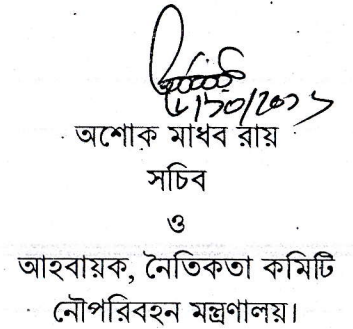 অশোক মাধব রায়
সচিব
ও
আহবায়ক, নৈতিকতা কমিটি
নৌপরিবহন মন্ত্রণালয়।